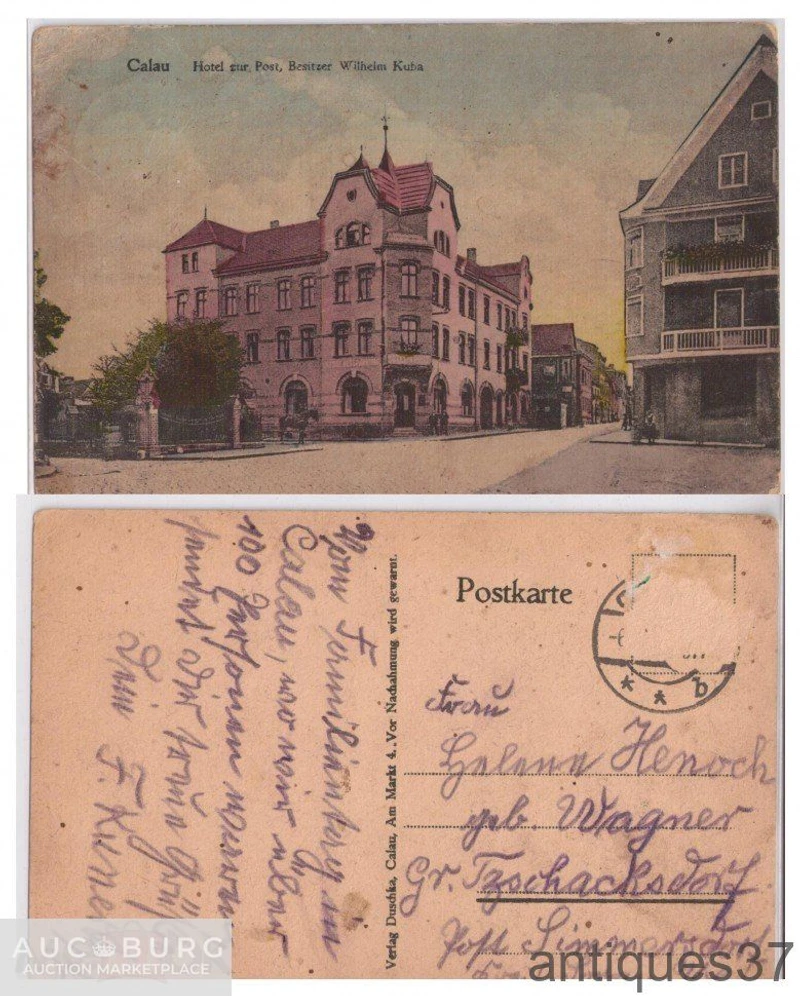 Calau Hotel zur Post, Besitzer Wilhelm Kuba
Postkarte
b
Frau
Helene Henoch
geb. Wagner
Gr. Tzschacksdorf
Post Simmersdorf
Verlag Duschka, Calau, Am Markt 4. „Vor Nachahmung wird gewarnt.
Vom Familientag in
Calau, wo wir über
100 Personen waren
sendet dir
Dein F.
AUCBURG
AUCTION MARKETPLACE
antiques37